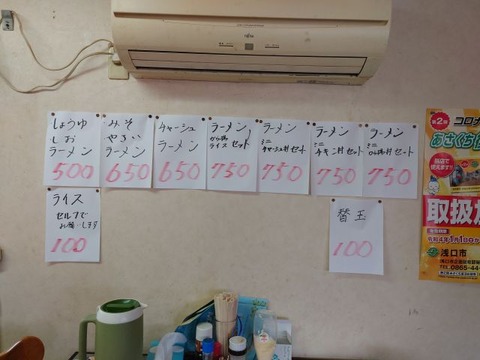 しょうゆ
しお
ラーメン
500
みそ
やさい
ラーメン
650
チャーシュー
ラーメン
650
ラーメン
から揚
ライス セット
750
ラーメン
ミニ
チャーシュ丼セット
750
ラーメン
ミニ
セット
750
ラーメン
ミニ
から揚丼セット
750
ライス
セルフで
お願いします
100
替玉
100
第2弾
コロナ
あさくち
取扱
令和4年1月1日
浅口市
TEL.0865-44